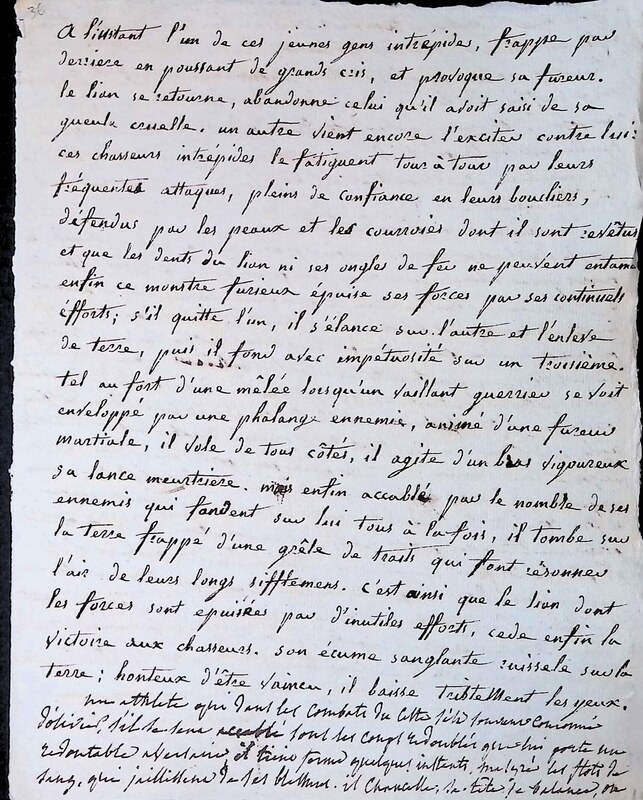 36
A l'instant l'un de ces jeunes gens intrépide, frappe par
derriere en poussant de grands cris, et provoque sa fureur.
le lion se retourne, abandonne celui qu'il avoit saisi de sa
gueule cruelle. un autre vient encore l'exciter contre lui:
ces chasseurs intrépides le fatiguent tour à tour par leurs
fréquentes attaques, pleins de confiance en leurs boucliers,
défendus par les peaux et les courroies dont il sont revêtus
et que les dents du lion ni ses ongles de fer ne peuvent entamer
enfin ce monstre furieux épuise ses forces par ses continuels
éfforts; s'il quitte l'un, il s'élance sur l'autre et l'enleve
de terre, puis il fond avec impétuosité sur un troisième.
tel au fort d'une mêlée lorsqu'un vaillant guerrier se voit
enveloppe par une phalange ennemie, animé d'une fureur
martiale, il vole de tous côtés, il agite d'un bras vigoureux
sa lance meurtriere. mais enfin accablé par le nombre de ses
ennemis qui fondent sur lui tous à la fois, il tombe sur
la terre frappé d'une grêle de traits qui font résonner
l'air de leurs longs sifflemens. c'est ainsi que le lion dont
les forces sont epuisées par d'inutiles efforts, cede enfin la
victoire aux chasseurs. son écume sanglante ruissele sur la
terre; honteux d'être vaincu, il baisse tristement les yeux.
un athlete que dans les combats du Ceste s'est souvent couronné
d'olivier, s'il se sent accablé sous les coups redoublés que lui porte un
redoutable adversaire il tient ferme quelques instants, malgré les flots de
sang, que jaillissent de ses blessures. il chancelle, sa tête se balance, ou